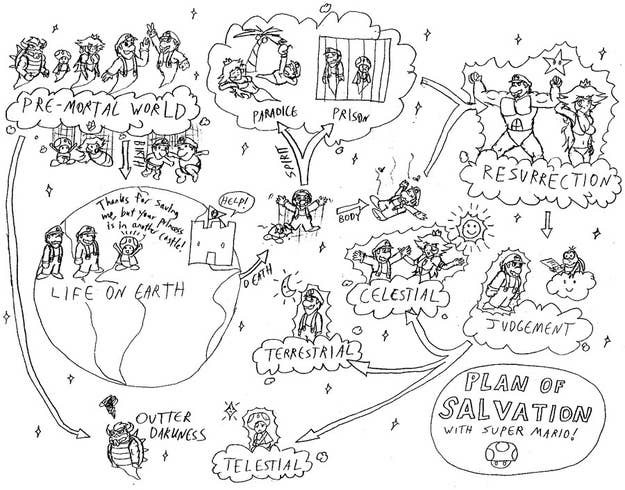 PRE-MORTAL WORLD
BIRTH
PARADICE
PRISON
SPIRIT
BODY
RESURRECTION
Thanks for saving
me, but your princess
is in another castle!
HELP!
LIFE ON EARTH
DEATH
CELESTIAL
JUDGEMENT
TERRESTRIAL
OUTTER
DARKNESS
TELESTIAL
PLAN OF
SALVATION
WITH SUPER MARIO!